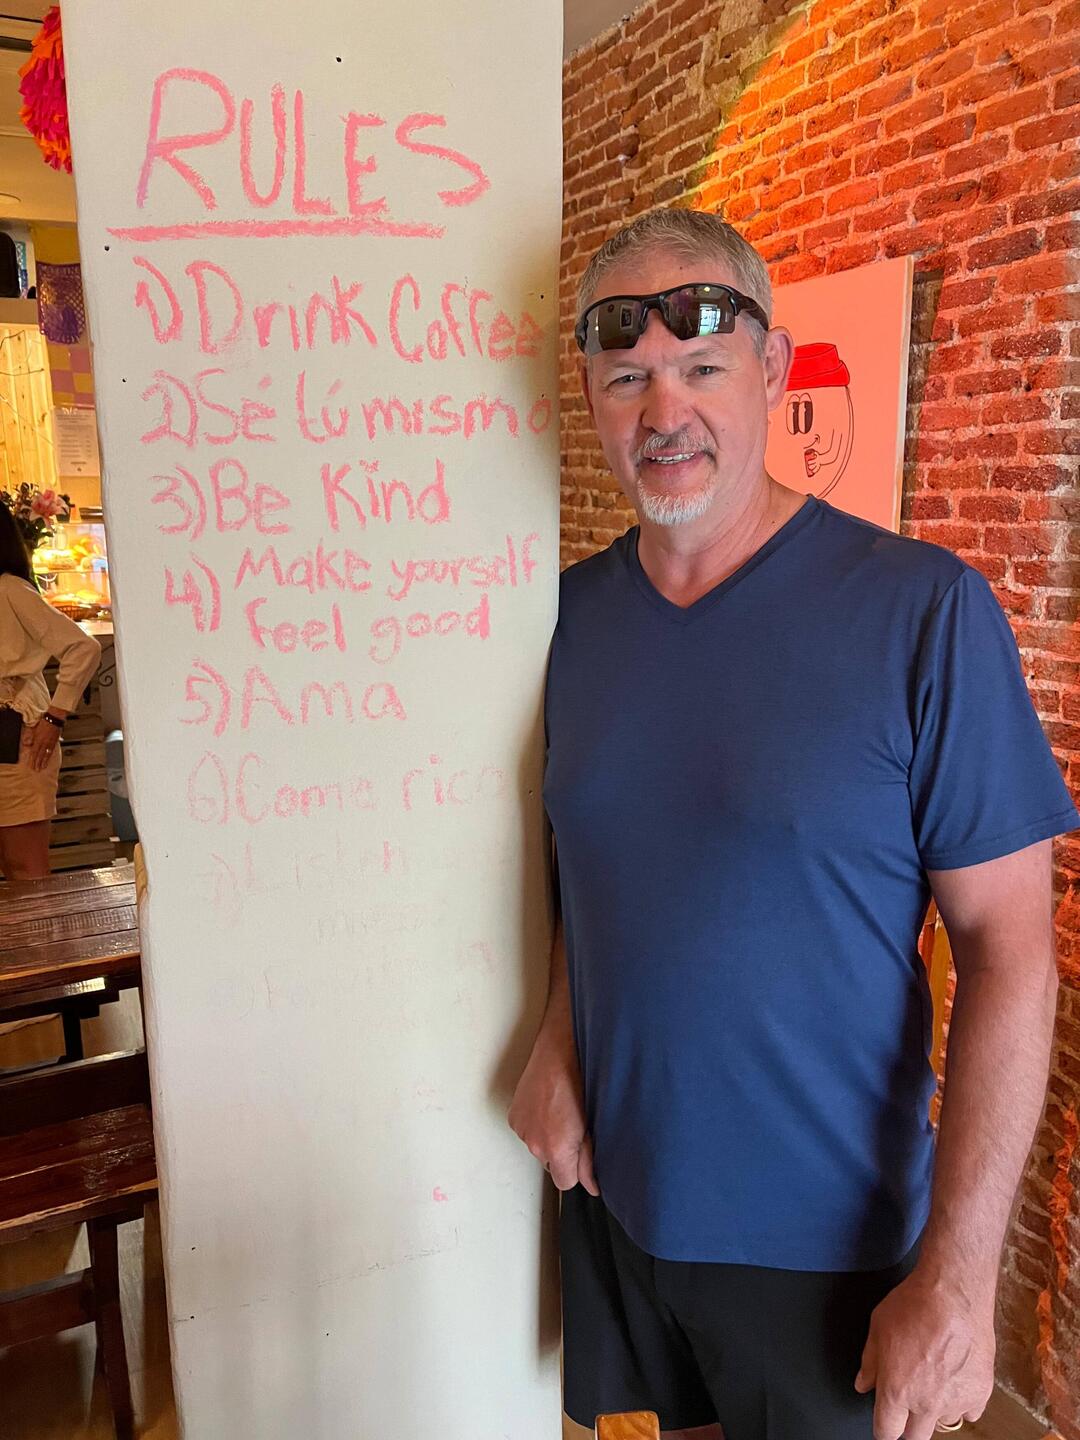 RULES
1) Drink Coffee
2) Sé tú mismo
3) Be Kind
4) Make yourself
feel good
5) Ama
6) Come rico
7) Listen